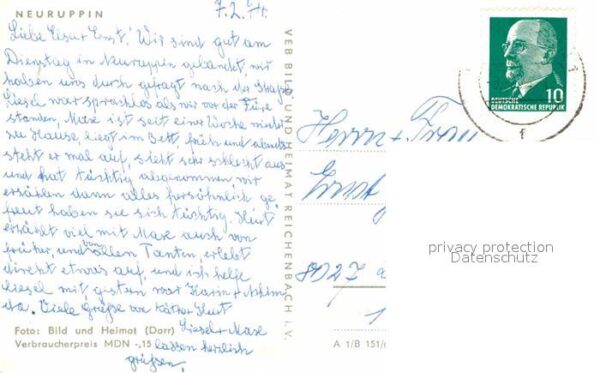 NEURUPPIN
7.2.71.
Liebe Else u. Ernst! Wir sind gut am
Dienstag in Neuruppin gelandet, wir
haben uns durch gefragt nach der
Liesel war sprachlos als wir vor der Türe
standen, Maxe ist seit einer Woche wieder
zu Hause, liegt im Bett, früh und abends
steht er mal auf, sieht sehr schlecht aus
und hat tüchtig abgenommen wir
erzählen dann alles persönlich ge-
freut haben sie sich tüchtig. Kurt
erzählt viel mit Maxe auch von
früher, und von allen Tanten, erlebt
direkt etwas auf, und ich helfe
Liesel mit, gestern war Karin +
da. Viele Grüße von Käthe + Kurt
Liesel + Maxe
lassen herzlich
grüßen.
Foto: Bild und Heimat (Darr)
Verbraucherpreis MDN -,15
VEB BILD UND HEIMAT REICHENBACH i. V.
10
DEUTSCHE
DEMOKRATISCHE REPUBLIK
f
Herrn + Frau
Ernst
8027
1
A 1/B 151/
privacy protection
Datenschutz